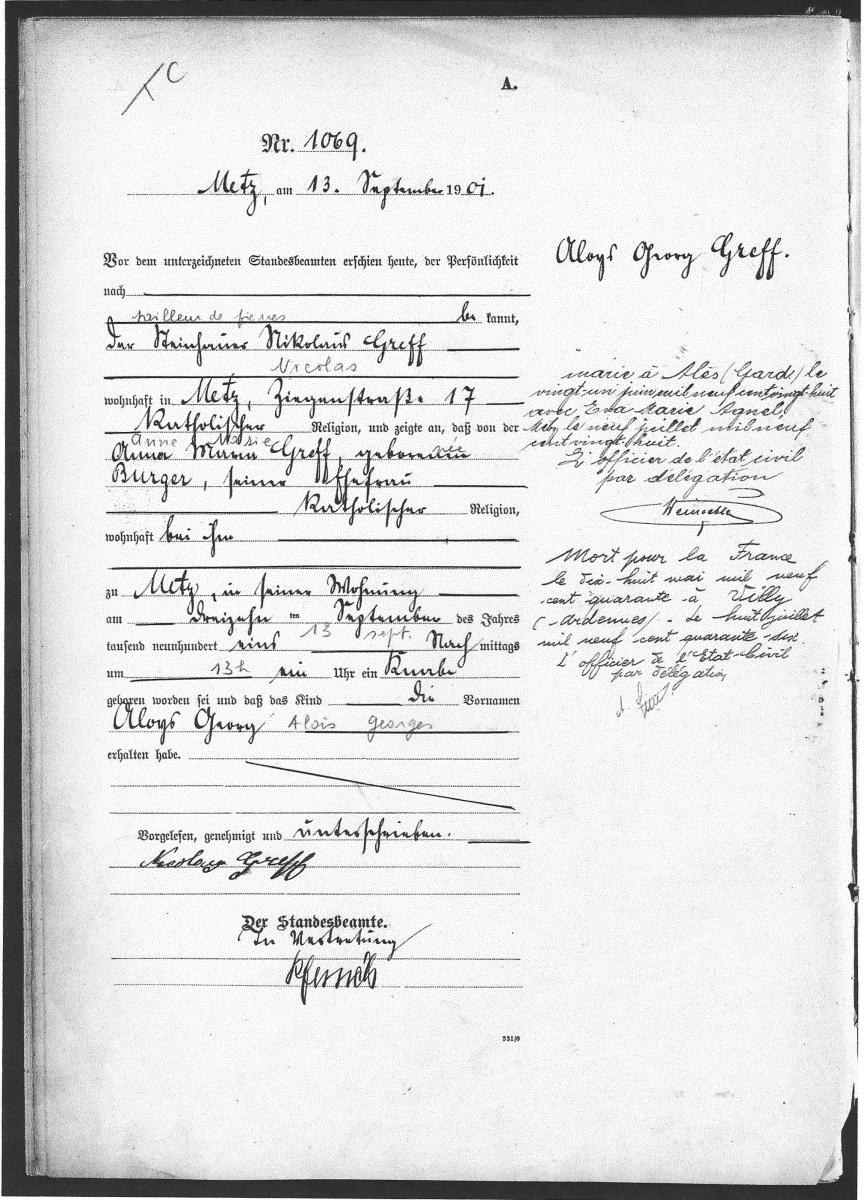 A.
Nr. 1069.
Metz, am 13. September 1901.
Vor dem unterzeichneten Standesbeamten erschien heute, der Persönlichkeit
nach
tailleur de pierres be kannt,
der Steinhauer Nikolaus Greff
Nicolas
wohnhaft in Metz, Ziegenstraße 17
Katholischer Religion, und zeigte an, daß von der
Anne Marie née
Anna Maria Greff, geborenen
Burger, seiner Ehefrau
Katholischer Religion,
wohnhaft bei ihm
zu Metz, in seiner Wohnung
am dreizehn ten September des Jahres
13 sept.
tausend neunhundert eins Nach mittags
um 13h ein Uhr ein Knabe
geboren worden sei und daß das Kind die Vornamen
Aloys Georg Aloïs Georges
erhalten habe.
Vorgelesen, genehmigt und unterschrieben.
Nicolaus Greff
Der Standesbeamte.
In Vertretung
331/0
Aloys Georg Greff.
marié à Alès (Gard) le
vingt-un juin mil neuf cent vingt-huit
avec Eva Marie Agnel,
Metz, le neuf juillet mil neuf
cent vingt-huit.
L'officier de l'état civil
par délégation
Mort pour la France
le dix-huit mai mil neuf
cent quarante à Villy
(Ardennes). Le huit juillet
mil neuf cent quarante-six
L'officier de l'Etat-Civil
par délégation